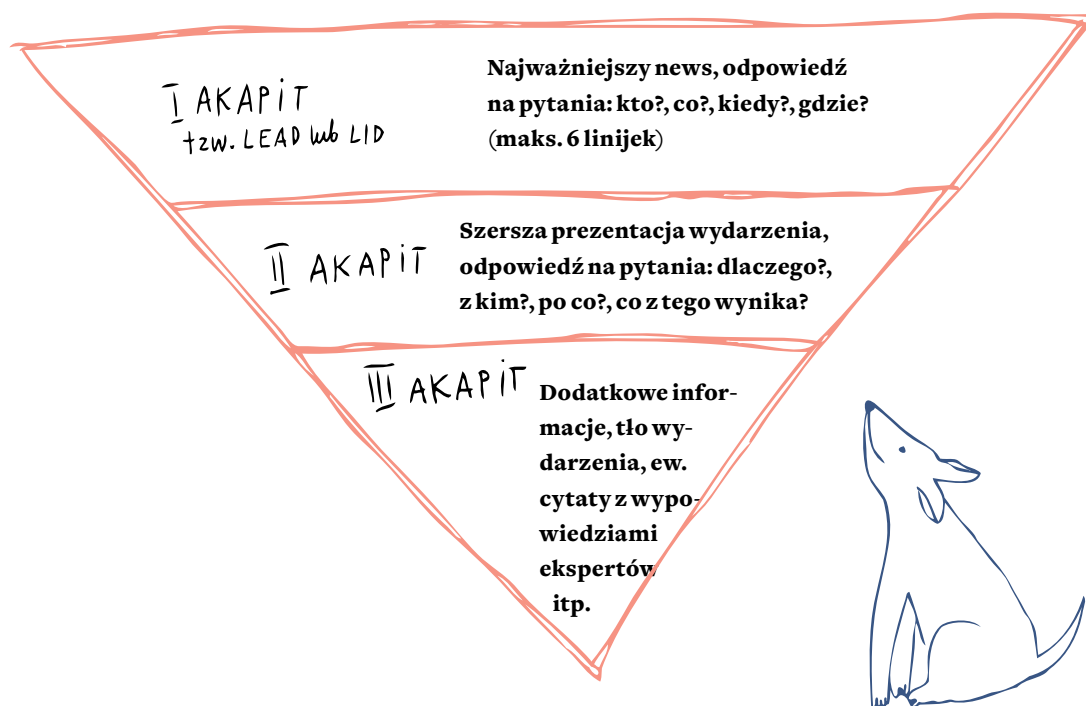 I AKAPIT
tzw. LEAD lub LID
Najważniejszy news, odpowiedź
na pytania: kto?, co?, kiedy?, gdzie?
(maks. 6 linijek)
II AKAPIT
Szersza prezentacja wydarzenia,
odpowiedź na pytania: dlaczego?,
z kim?, po co?, co z tego wynika?
III AKAPIT
Dodatkowe infor-
macje, tło wy-
darzenia, ew.
cytaty z wypo-
wiedziami
ekspertów
itp.